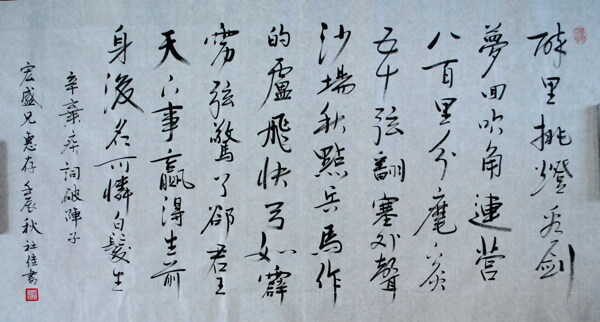 醉里挑燈看剑
夢回吹角連營
八百里分麾炙
五十弦翻塞外聲
沙場秋點兵馬作
的盧飛快弓如霹
雳弦驚了卻君王
天下事贏得生前
身後名可憐白髮生
辛棄疾詞破陣子
宏盛兄惠存壬辰秋社佳書